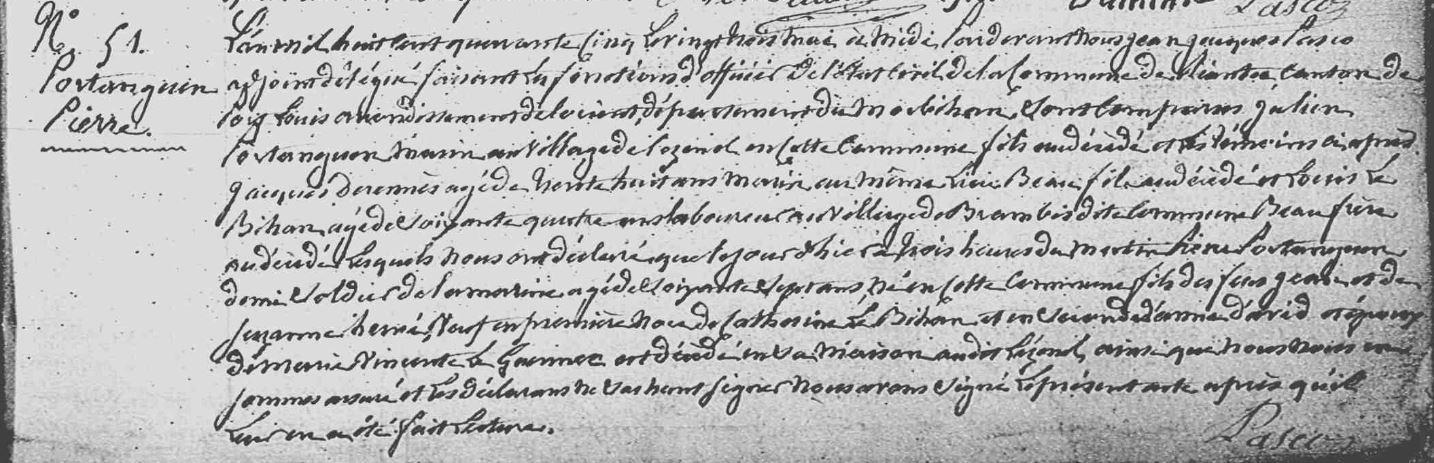 Pasco
N° 51.
Portanguen
Pierre.
L'an mil huit cent quarante cinq le vingt trois mai à midi Pardevant Nous jean jacques Pasco
adjoint délégué faisant les fonctions d'officier de l'état civil de la Commune de Riantec Canton de
Port Louis arrondissement de Lorient, département du Morbihan, sont comparus julien
Portanguen Marin au Village de Lozenel en cette Commune fils au décédé et les témoins ci après
jacques derennes agé de trente huit ans Marin au même Lieu Beau fils au décédé et Louis Le
Bihan agé de soixante quatre ans laboureur au Village de Brambis dite Commune Beau frère
au décédé Lesquels Nous ont déclaré que le jour d'hier à trois heures du matin Pierre Portanguen
demi Soldier de la marine agé de soixante sept ans, Né en cette Commune fils des feus jean et de
suzanne hervé, Veuf en première Noce de Catherine Le Bihan et en seconde d'anne david et époux
de marie Vincente Le Guennec est décédé en sa Maison audit Lozenel, ainsi que Nous Nous en
sommes assuré et les déclarans Ne sachant signer Nous avons signé Le présent acte après qu'il
Leur en a été fait Lecture.
Pasco